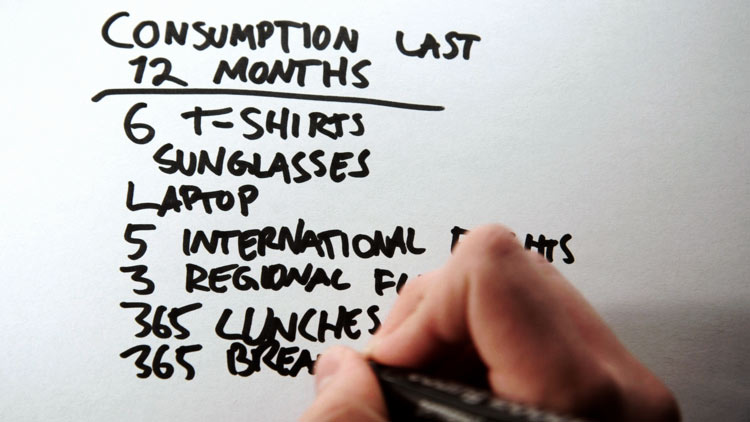 CONSUMPTION LAST
12 MONTHS
6 T-SHIRTS
SUNGLASSES
LAPTOP
5 INTERNATIONAL
3 REGIONAL
365 LUNCHES
365